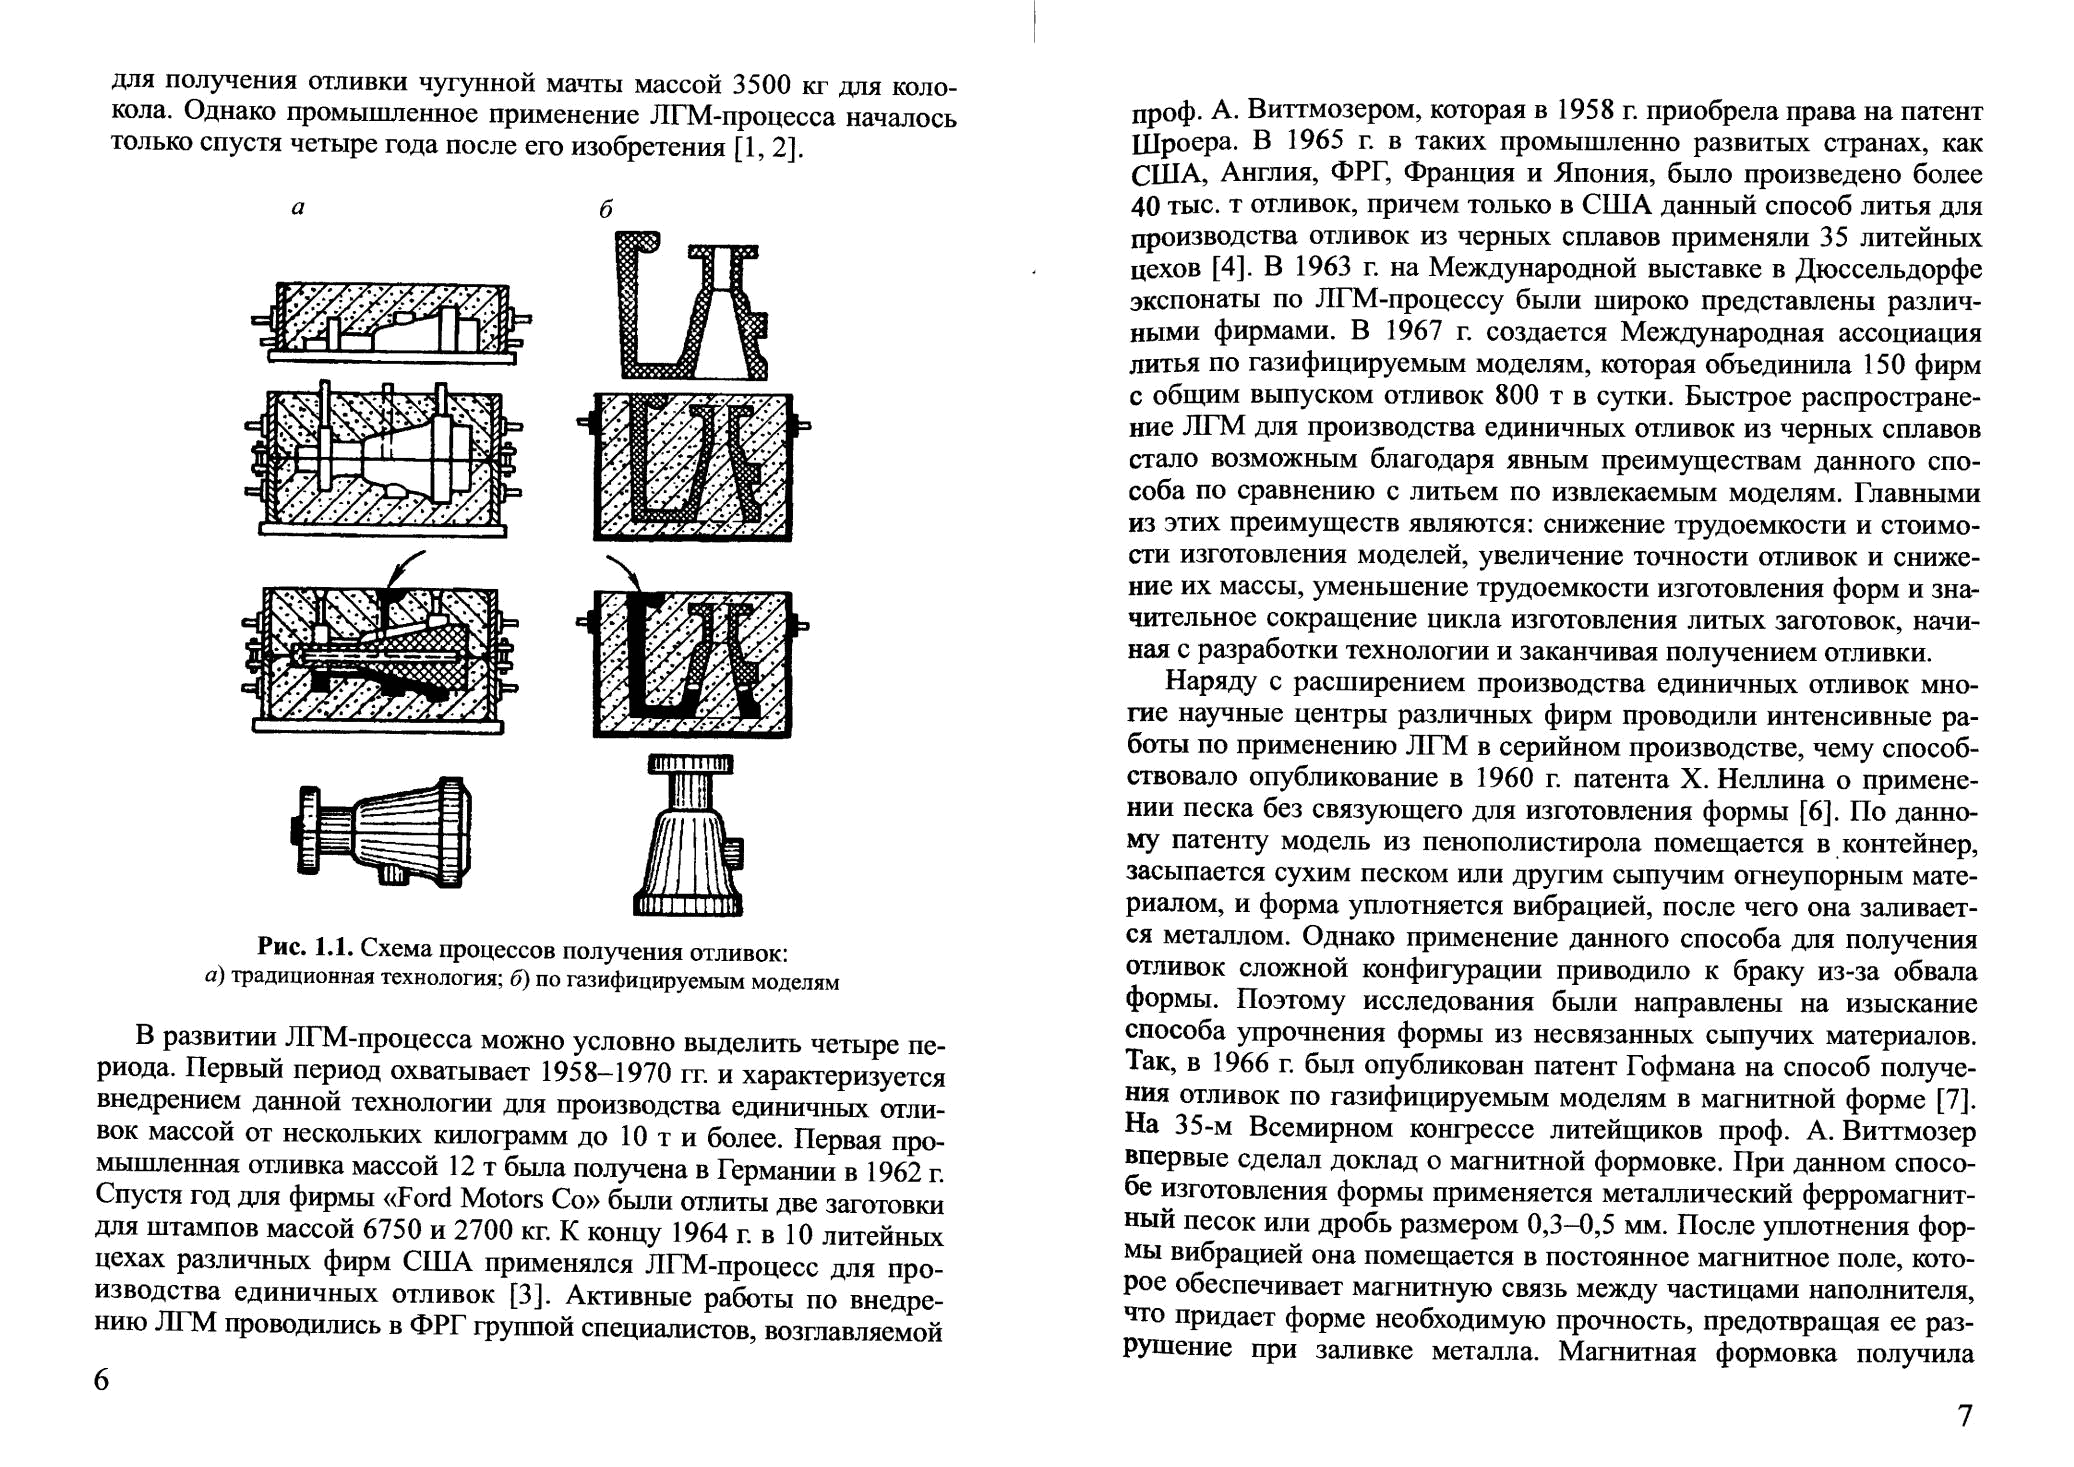 для получения отливки чугунной мачты массой 3500 кг для коло-
кола. Однако промышленное применение ЛГМ-процесса началось
только спустя четыре года после его изобретения [1, 2].
а
б
Рис. 1.1. Схема процессов получения отливок:
а) традиционная технология; б) по газифицируемым моделям
В развитии ЛГМ-процесса можно условно выделить четыре пе-
риода. Первый период охватывает 1958–1970 гг. и характеризуется
внедрением данной технологии для производства единичных отли-
вок массой от нескольких килограмм до 10 т и более. Первая про-
мышленная отливка массой 12 т была получена в Германии в 1962 г.
Спустя год для фирмы «Ford Motors Co» были отлиты две заготовки
для штампов массой 6750 и 2700 кг. К концу 1964 г. в 10 литейных
цехах различных фирм США применялся ЛГМ-процесс для про-
изводства единичных отливок [3]. Активные работы по внедре-
нию ЛГМ проводились в ФРГ группой специалистов, возглавляемой
6
проф. А. Виттмозером, которая в 1958 г. приобрела права на патент
Шроера. В 1965 г. в таких промышленно развитых странах, как
США, Англия, ФРГ, Франция и Япония, было произведено более
40 тыс. т отливок, причем только в США данный способ литья для
производства отливок из черных сплавов применяли 35 литейных
цехов [4]. В 1963 г. на Международной выставке в Дюссельдорфе
экспонаты по ЛГМ-процессу были широко представлены различ-
ными фирмами. В 1967 г. создается Международная ассоциация
литья по газифицируемым моделям, которая объединила 150 фирм
с общим выпуском отливок 800 т в сутки. Быстрое распростране-
ние ЛГМ для производства единичных отливок из черных сплавов
стало возможным благодаря явным преимуществам данного спо-
соба по сравнению с литьем по извлекаемым моделям. Главными
из этих преимуществ являются: снижение трудоемкости и стоимо-
сти изготовления моделей, увеличение точности отливок и сниже-
ние их массы, уменьшение трудоемкости изготовления форм и зна-
чительное сокращение цикла изготовления литых заготовок, начи-
ная с разработки технологии и заканчивая получением отливки.
Наряду с расширением производства единичных отливок мно-
гие научные центры различных фирм проводили интенсивные ра-
боты по применению ЛГМ в серийном производстве, чему способ-
ствовало опубликование в 1960 г. патента Х. Неллина о примене-
нии песка без связующего для изготовления формы [6]. По данно-
му патенту модель из пенополистирола помещается в контейнер,
засыпается сухим песком или другим сыпучим огнеупорным мате-
риалом, и форма уплотняется вибрацией, после чего она заливает-
ся металлом. Однако применение данного способа для получения
отливок сложной конфигурации приводило к браку из-за обвала
формы. Поэтому исследования были направлены на изыскание
способа упрочнения формы из несвязанных сыпучих материалов.
Так, в 1966 г. был опубликован патент Гофмана на способ получе-
ния отливок по газифицируемым моделям в магнитной форме [7].
На 35-м Всемирном конгрессе литейщиков проф. А. Виттмозер
впервые сделал доклад о магнитной формовке. При данном спосо-
бе изготовления формы применяется металлический ферромагнит-
ный песок или дробь размером 0,3–0,5 мм. После уплотнения фор-
мы вибрацией она помещается в постоянное магнитное поле, кото-
рое обеспечивает магнитную связь между частицами наполнителя,
что придает форме необходимую прочность, предотвращая ее раз-
рушение при заливке металла. Магнитная формовка получила
7